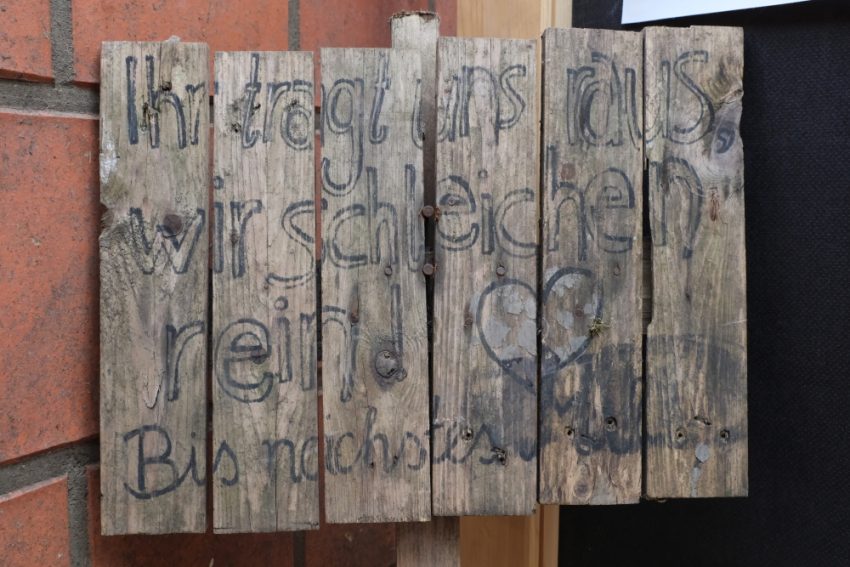 Ihr tragt uns raus,
wir schleichen
rein!
Bis nächstes Mal